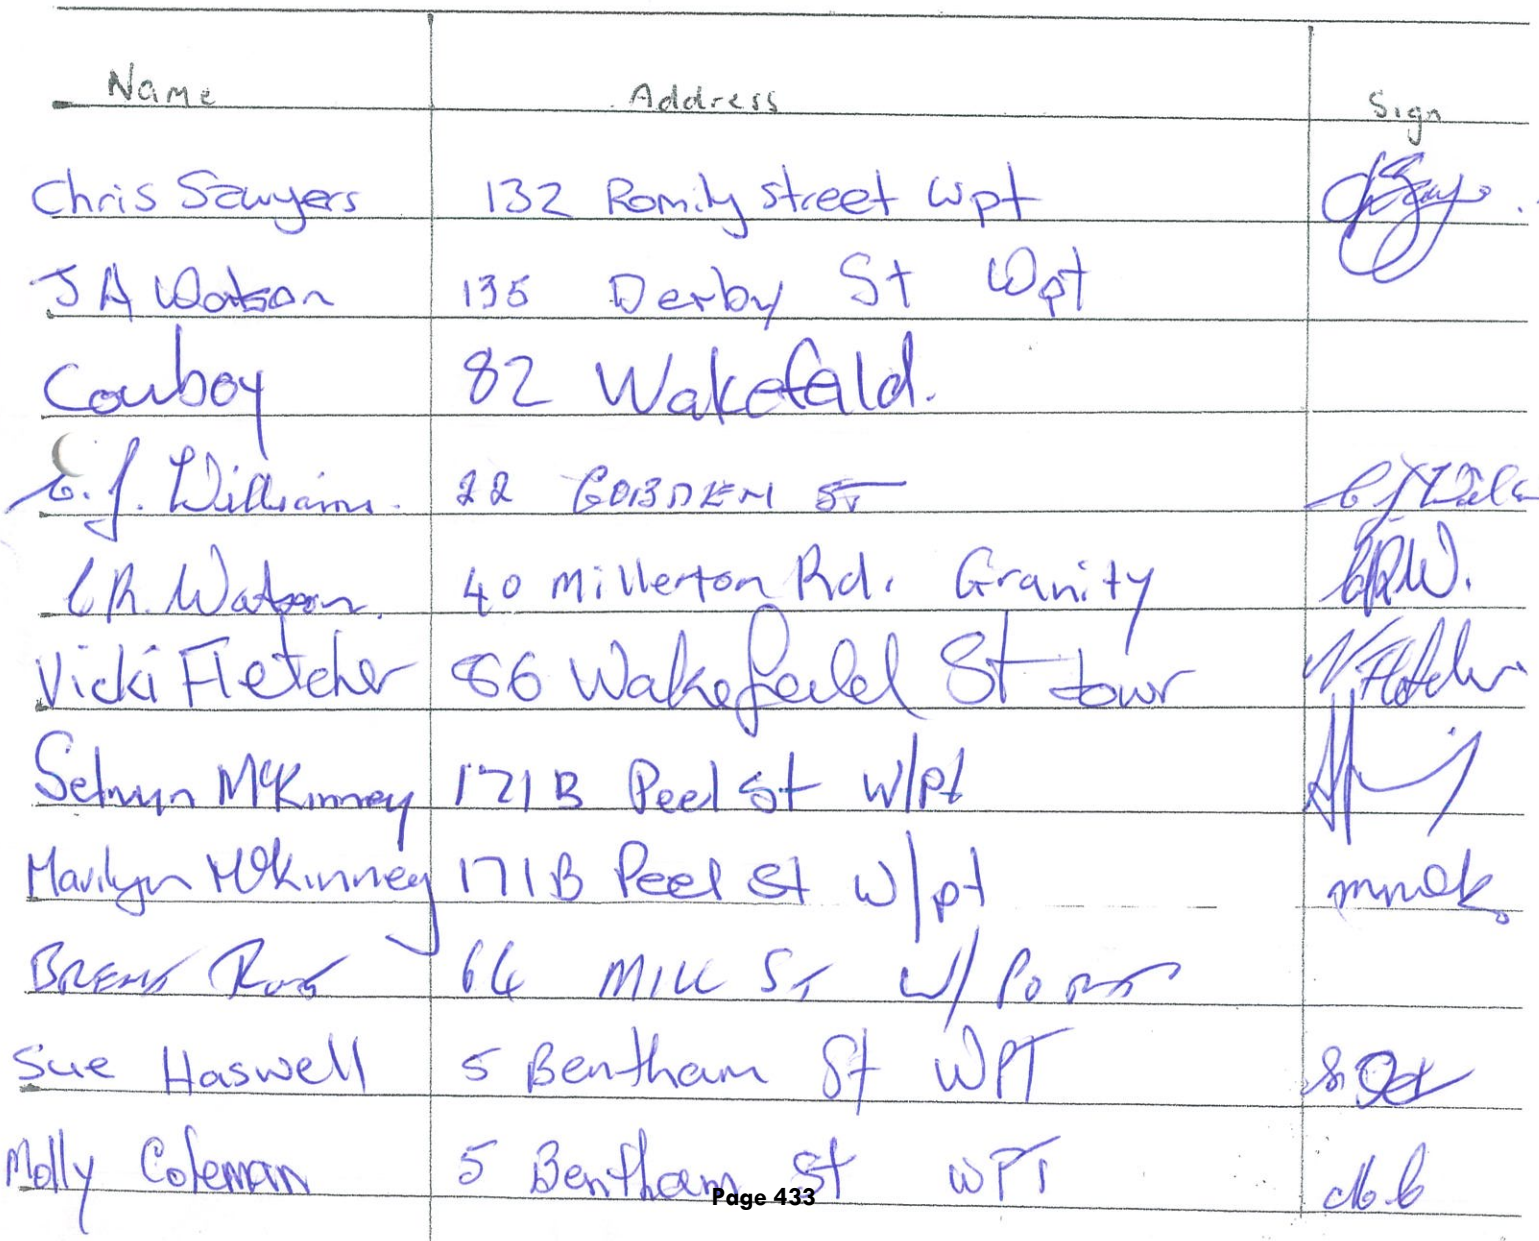 Name Address Sign
Chris Sawyers 132 Romily street wpt
J A Watson 135 Derby St Wpt
Cowboy 82 Wakefeild.
C. J. Williams. 22 COBDEN ST
C R. Watson. 40 Millerton Rd. Granity CRW.
Vicki Fletcher 86 Wakefeild St town V Fletcher
Selwyn McKinney 171B Peel St W/pt
Marilyn McKinney 171B Peel St W/pt
BRENT 64 MILL ST W/PORT
Sue Haswell 5 Bentham St WPT
Molly Coleman 5 Bentham St WPT M.C
Page 433